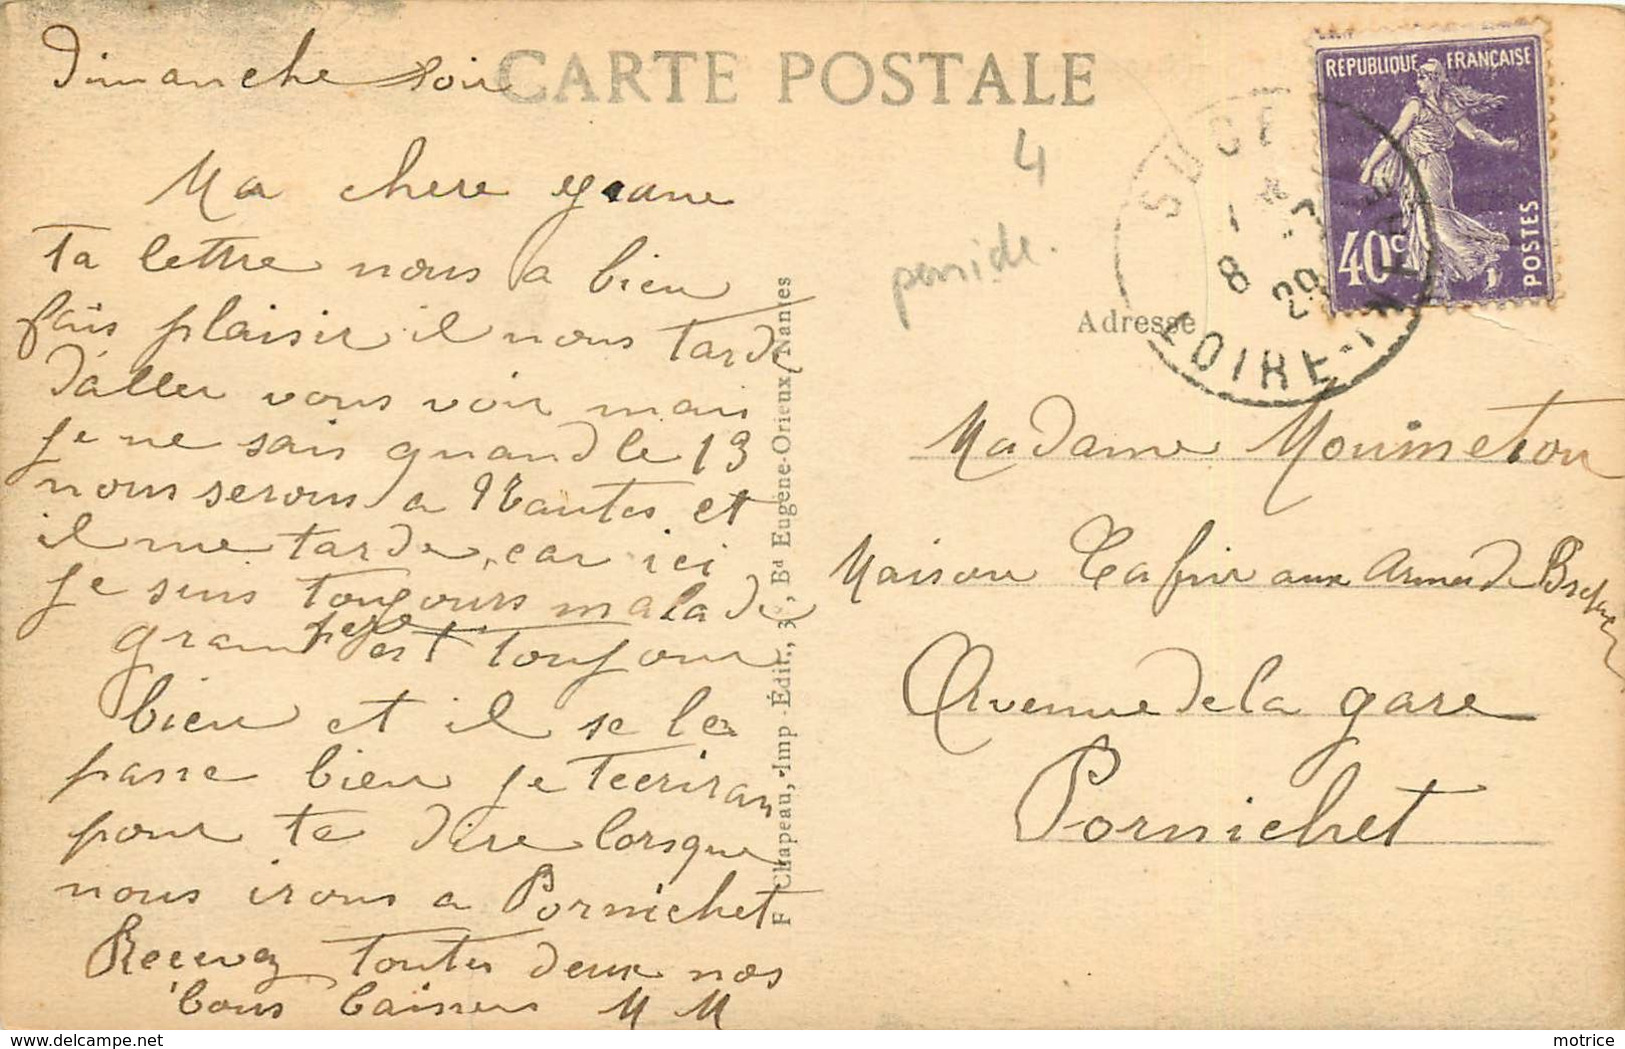 CARTE POSTALE
Dimanche soir
Ma chere
ta lettre nous a bien
fais plaisir il nous tarde
d'aller vous voir mais
je ne sais quand le 13
nous serons a Nantes et
il me tarde, car ici
je suis toujours malade
grand pere est toujour
bien et il se le
passe bien je tecrirai
pour te dire lorsque
nous irons a Pornichet
Recevez toutes deux nos
bons baisers M M
F Chapeau, Imp.-Édit., Bd Eugène-Orieux, Nantes
4
RÉPUBLIQUE FRANÇAISE
40c
POSTES
SUCE
8
29
LOIRE-INF
Adresse
Madame
Maison aux Armes de
Avenue de la gare
Pornichet
motrice